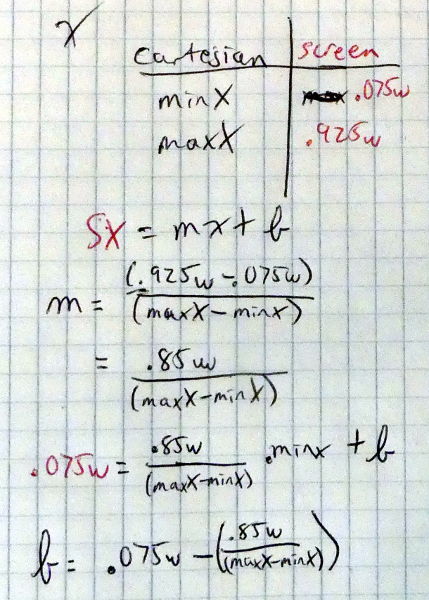 x
cartesian screen
minX .075w
maxX .925w
SX = mx + b
m = (.925w - .075w) / (maxX - minX)
= .85w / (maxX - minX)
.075w = .85w / (maxX - minX) · minx + b
b = .075w - (.85w / (maxX - minX))